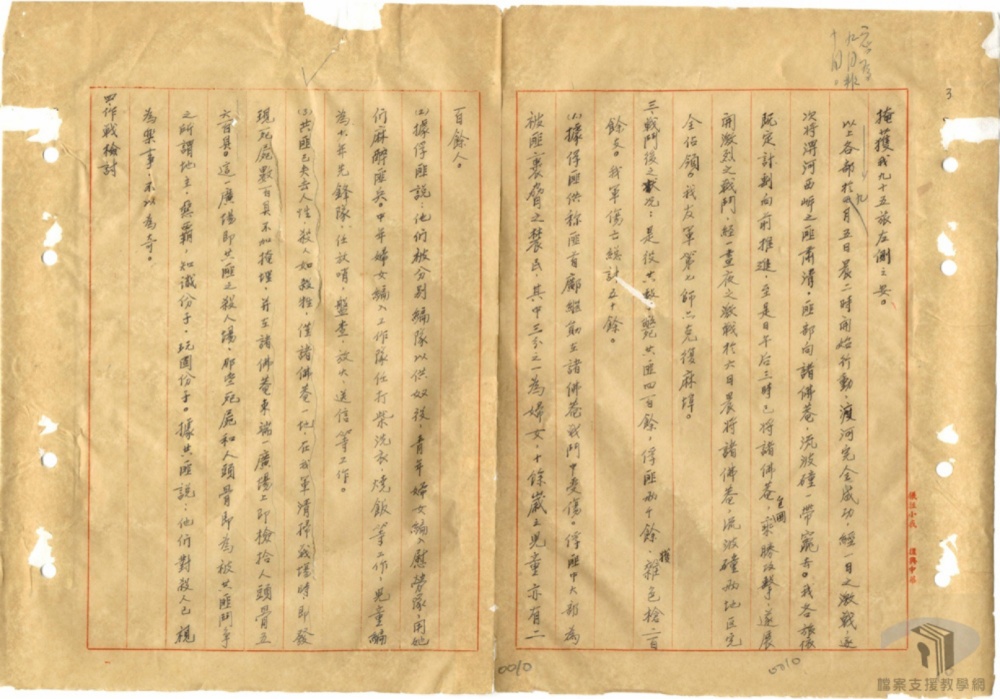 掩護我九十五旅左側之安。
以上各部於九月五日晨二時開始行動,渡河完全成功,經一日之激戰,逐
次將淠河西岸之匪肅清。匪部向諸佛菴,流波䃥一帶竄去。我各旅依
既定計劃向前推進,至是日午后三時已將諸佛菴包圍,乘勝攻擊,遂展
開激烈之戰鬥,經一晝夜之激戰於六日晨將諸佛菴,流波䃥兩地區完
全佔領。我友軍第七師亦克復麻埠。
三、戰鬥後之狀況:是役共斃共匪四百餘,俘匪兩千餘,獲雜色槍二百
餘支。我軍傷亡總計五十餘。
(1)據俘匪供称匪首鄺継勛至諸佛菴戰鬥中受傷。俘匪中大部為
被匪裹脅之農民,其中三分之一為婦女,十餘歲之兒童亦有二
百餘人。
(2)據俘匪說:他們被分別編隊以供奴役,青年婦女編入慰勞隊,用她
們麻醉匪兵。中年婦女編入工作隊任打柴洗衣,燒飯等工作,兒童編
為少年先鋒隊,任放哨,盤查,放火,送信等工作。
(3)共匪已失去人性,殺人如殺牲,僅諸佛菴一地,在我軍清掃戰場時即發
現死屍數百具不加掩埋,并至諸佛菴東端一廣場上即檢拾人頭骨五
六百具。這廣場即共匪之殺人場,那些死屍和人頭骨即為被共匪鬥爭
之所謂地主,惡霸,知識份子,頑固份子。據共匪說:他們對殺人已視
為樂事,不以為奇。
四、作戰檢討
3
0010
0010
檔案支援教學網